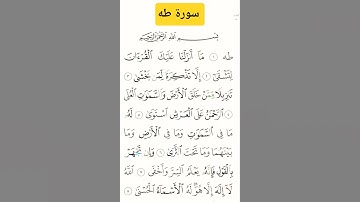 سورة طه
بِسْمِ اللَّهِ الرَّحْمَٰنِ الرَّحِيمِ
طه ١ مَآ أَنزَلْنَا عَلَيْكَ ٱلْقُرْءَانَ
لِتَشْقَىٰٓ ٢ إِلَّا تَذْكِرَةً لِّمَن يَخْشَىٰ ٣
تَنزِيلًا مِّمَّنْ خَلَقَ ٱلْأَرْضَ وَٱلسَّمَٰوَٰتِ ٱلْعُلَى
٤ ٱلرَّحْمَٰنُ عَلَى ٱلْعَرْشِ ٱسْتَوَىٰ ٥ لَهُۥ
مَا فِى ٱلسَّمَٰوَٰتِ وَمَا فِى ٱلْأَرْضِ وَمَا
بَيْنَهُمَا وَمَا تَحْتَ ٱلثَّرَىٰ ٦ وَإِن تَجْهَرْ
بِٱلْقَوْلِ فَإِنَّهُۥ يَعْلَمُ ٱلسِّرَّ وَأَخْفَى ٧ ٱللَّهُ
لَآ إِلَٰهَ إِلَّا هُوَ لَهُ ٱلْأَسْمَآءُ ٱلْحُسْنَىٰ ٨